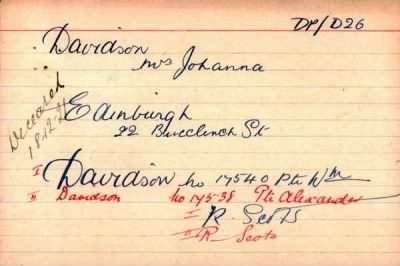 DP/D26
Davidson
Mrs Johanna
Deceased
18.12.21
Edinburgh
22 Buccleuch St
I Davidson No 17540 Pte Wm
II Davidson No 17538 Pte Alexander
I R. Scots
II R Scots